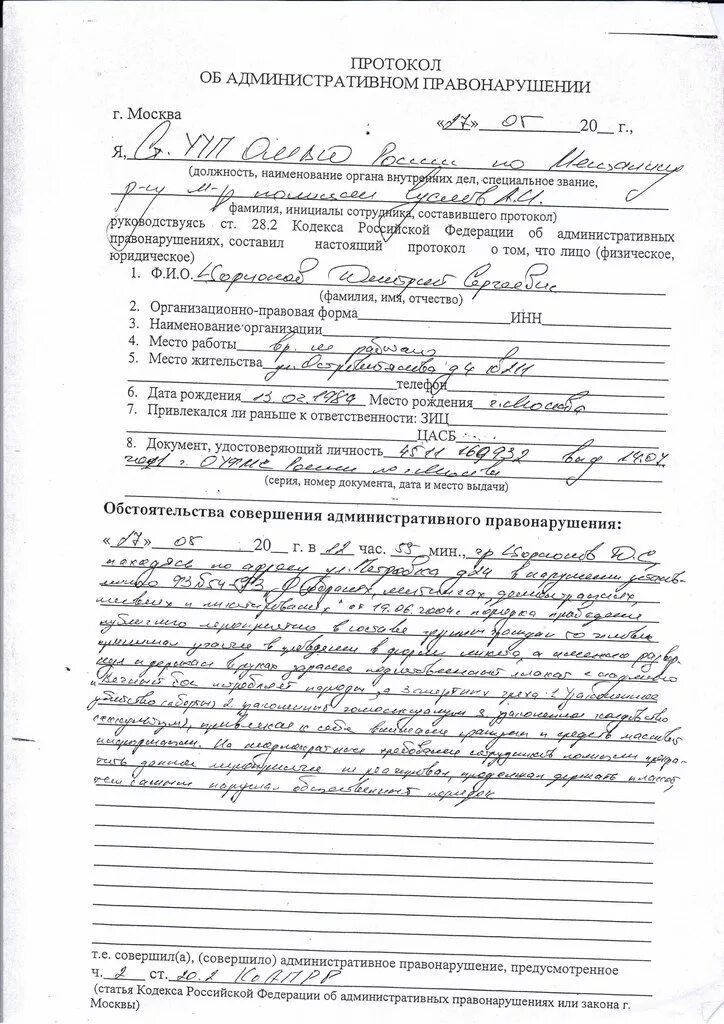 ПРОТОКОЛ
ОБ АДМИНИСТРАТИВНОМ ПРАВОНАРУШЕНИИ
г. Москва «17» 05 20__ г.,
Я, Ст. УУП ОМВД России по Мещанскому
(должность, наименование органа внутренних дел, специальное звание,
р-ну м-р полиции А.И.
фамилия, инициалы сотрудника, составившего протокол)
руководствуясь ст. 28.2 Кодекса Российской Федерации об административных
правонарушениях, составил настоящий протокол о том, что лицо (физическое,
юридическое)
1. Ф.И.О. Дмитрий Сергеевич
(фамилия, имя, отчество)
2. Организационно-правовая форма ИНН
3. Наименование организации
4. Место работы вр. не работает
5. Место жительства ул. Островитянова д 4
телефон
6. Дата рождения 13.02.1989 Место рождения г. Москва
7. Привлекался ли раньше к ответственности: ЗИЦ
ЦАСБ
8. Документ, удостоверяющий личность 4511 169932 выд 14.07
г. ОУФМС России по г. Москве
(серия, номер документа, дата и место выдачи)
Обстоятельства совершения административного правонарушения:
«17» 05 20__ г. в 12 час. 55 мин., гр Д.С.
находясь по адресу ул. Петровка д 24 в нарушении установ-
ленного ФЗ №54-ФЗ „О собраниях, митингах, демонстрациях,
шествиях и пикетированиях" от 19.06.2004г порядка проведения
публичного мероприятия в составе группы граждан человек
принимал участие в проведении в форме пикета, а именно развер-
нул и держал в руках заранее подготовленный плакат с
истребляет народы за 3 смертных греха: 1. Узаконенное
убийство (аборты) 2. узаконенный гомосексуализм 3. узаконенное колдовство
(оккультизм), привлекая к себе внимание граждан и средств массовой
информации. На неоднократные требования сотрудников полиции прекра-
тить данное мероприятие не реагировал, продолжал держать плакат,
тем самым нарушал общественный порядок
т.е. совершил(а), (совершило) административное правонарушение, предусмотренное
ч. 2 ст. 20.2 КоАП РФ
(статья Кодекса Российской Федерации об административных правонарушениях или закона г.
Москвы)